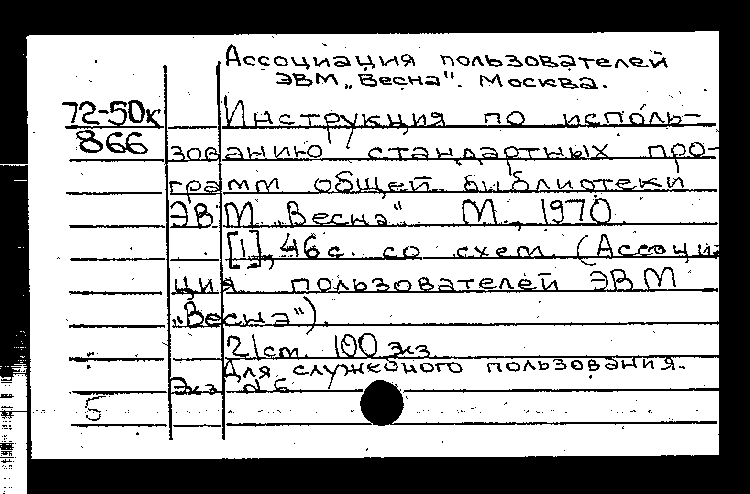 Ассоциация пользователей
ЭВМ „Весна". Москва.
72-50к Инструкция по исполь-
866 зованию стандартных про-
грамм общей библиотеки
ЭВМ „Весна" М., 1970.
[1], 46с. со схем. (Ассоци
ция пользователей ЭВМ
„Весна").
21 ст. 100 экз.
Для служебного пользования.
Экз. N 6
5